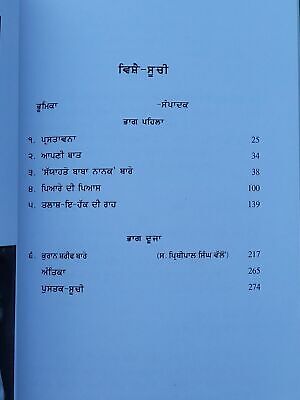 ਵਿਸ਼ੈ-ਸੂਚੀ
ਭੂਮਿਕਾ -ਸੰਪਾਦਕ
ਭਾਗ ਪਹਿਲਾ
੧. ਪ੍ਰਸਤਾਵਨਾ 25
੨. ਆਪਣੀ ਬਾਤ 34
੩. 'ਸੱਯਾਹਤੋ ਬਾਬਾ ਨਾਨਕ' ਬਾਰੇ 38
੪. ਪਿਆਰੇ ਦੀ ਪਿਆਸ 100
੫. ਤਲਾਸ਼-ਇ-ਹੱਕ ਦੀ ਰਾਹ 139
ਭਾਗ ਦੂਜਾ
੬. ਕੁਰਾਨ ਸ਼ਰੀਫ ਬਾਰੇ (ਸ. ਪ੍ਰਿਥੀਪਾਲ ਸਿੰਘ ਵੱਲੋਂ) 217
ਅੰਤਿਕਾ 265
ਪੁਸਤਕ-ਸੂਚੀ 274